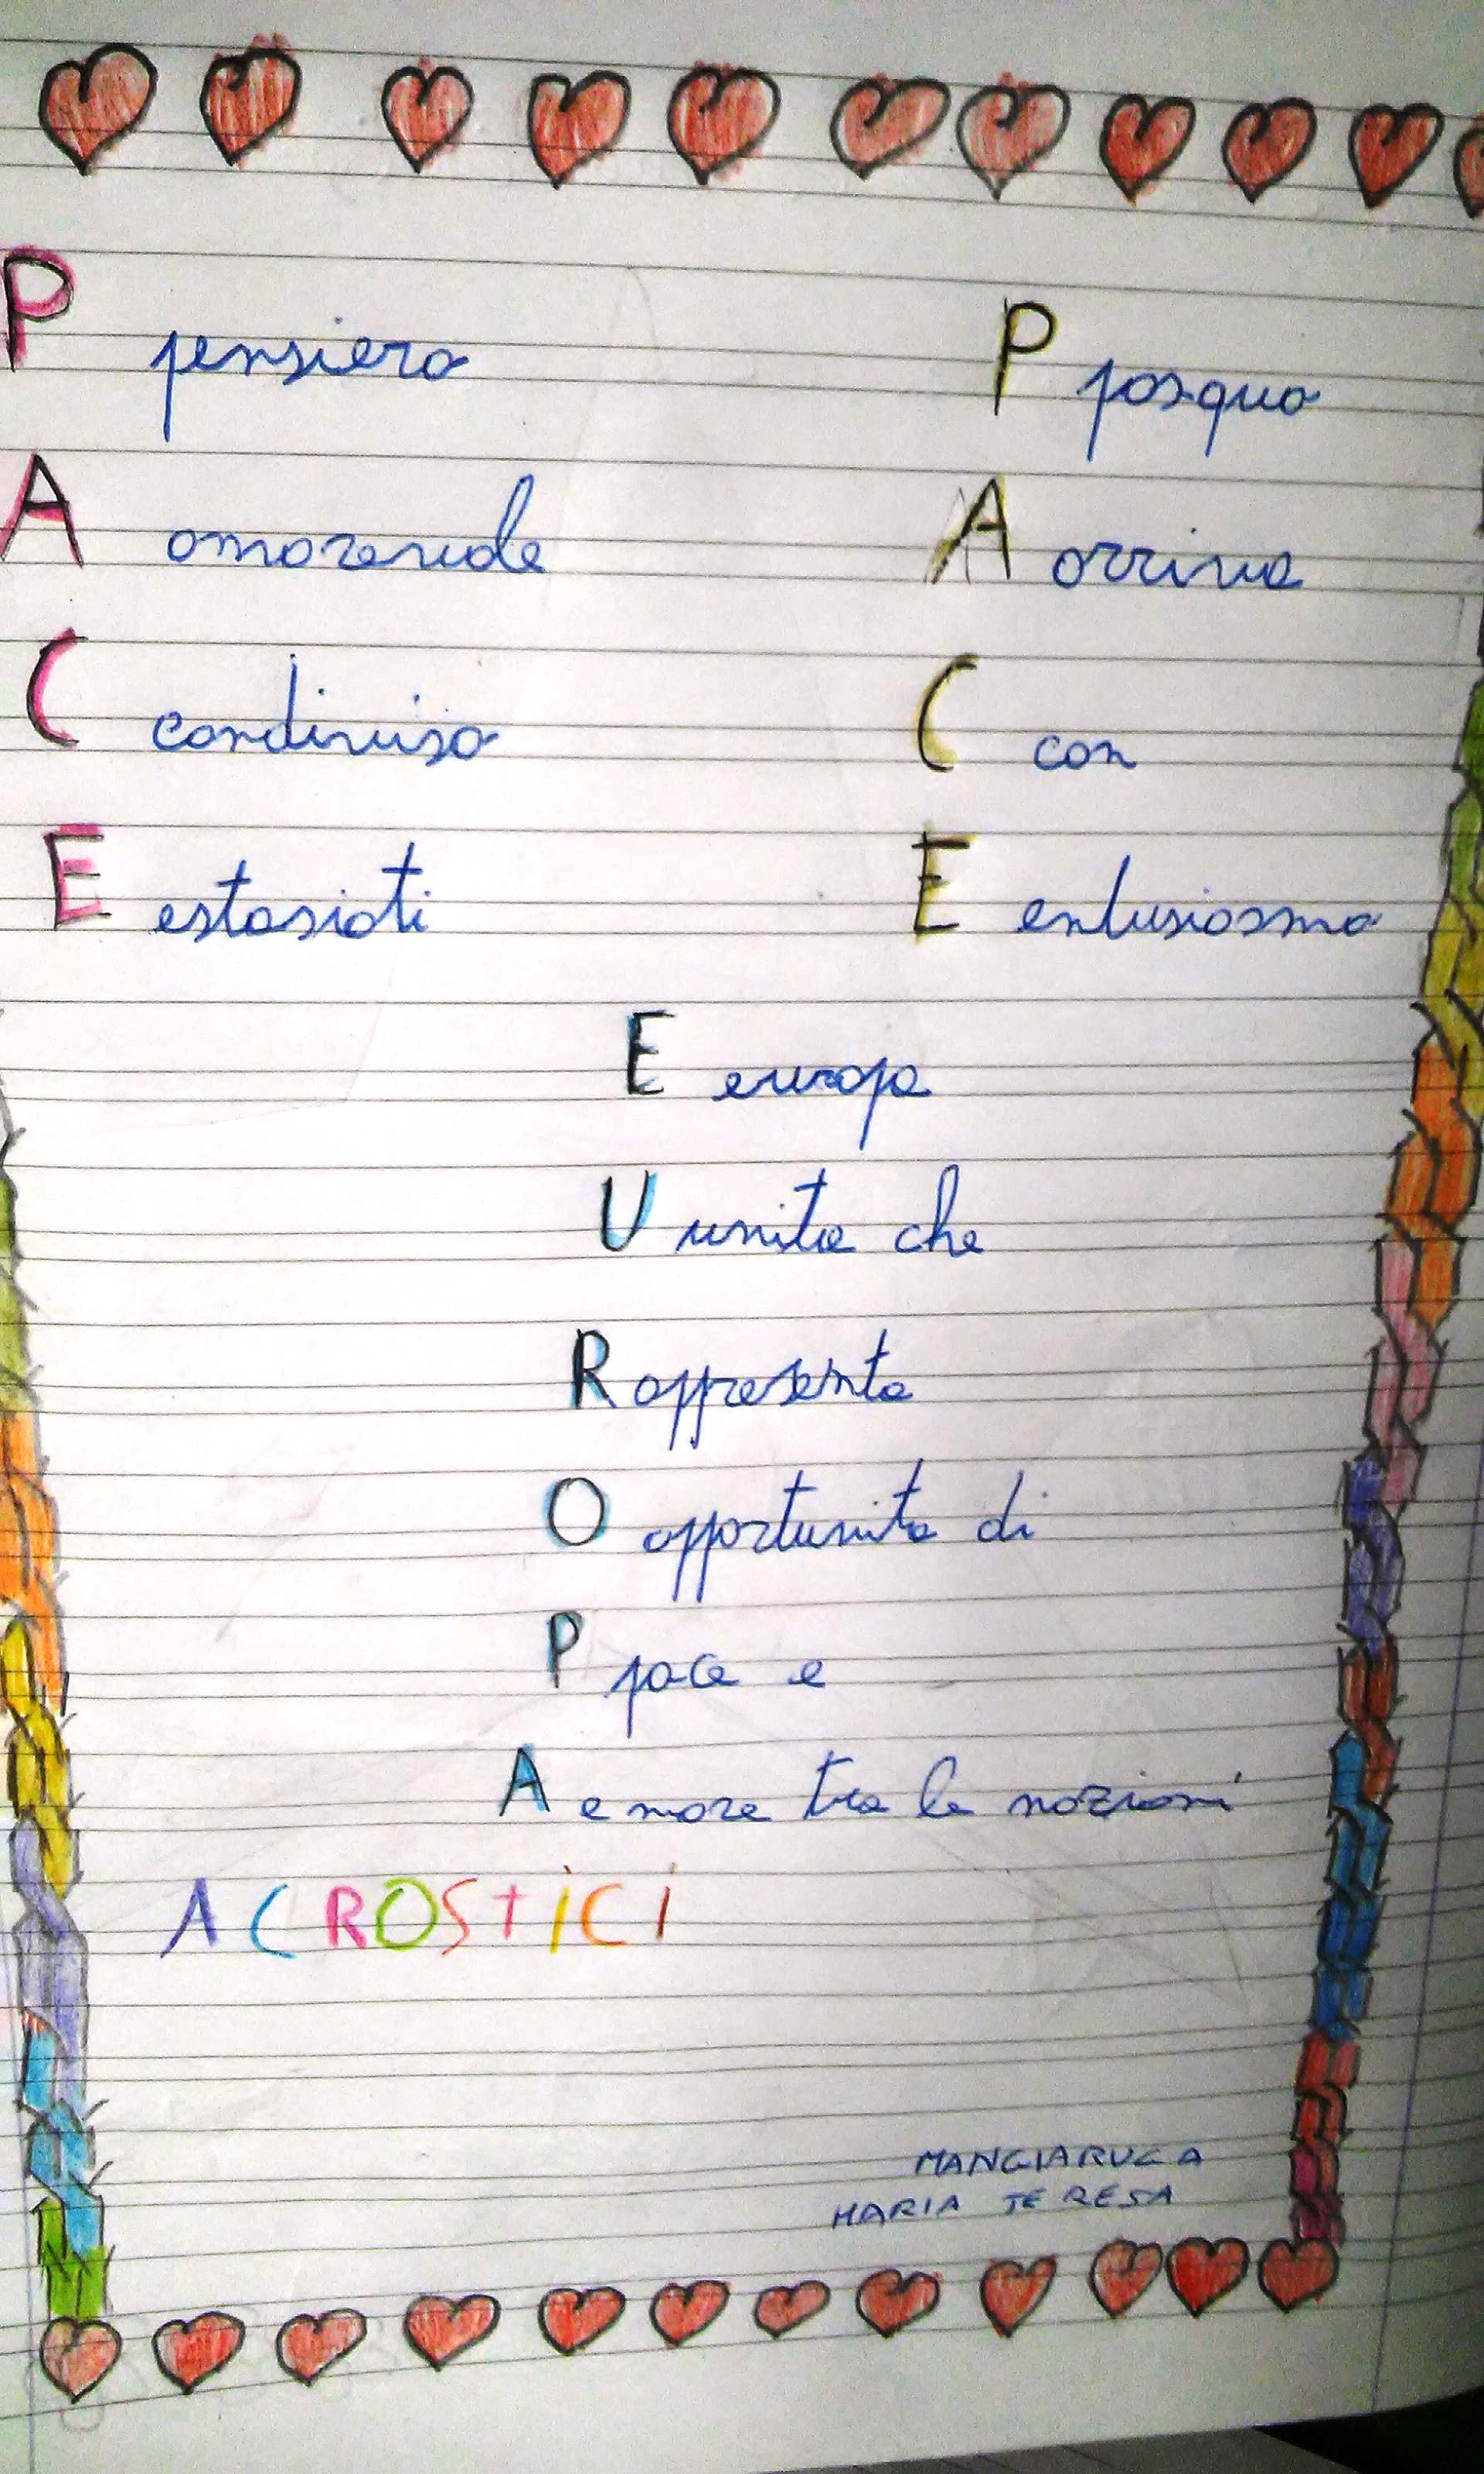 P pensiero
A amorevole
C condiviso
E estasiati
P pasqua
A arriva
C con
E entusiasmo
E europa
U unita che
R appresenta
O opportunita di
P pace e
A e more tra le nazioni
ACROSTICI
MANGIARUGA
MARIA TERESA